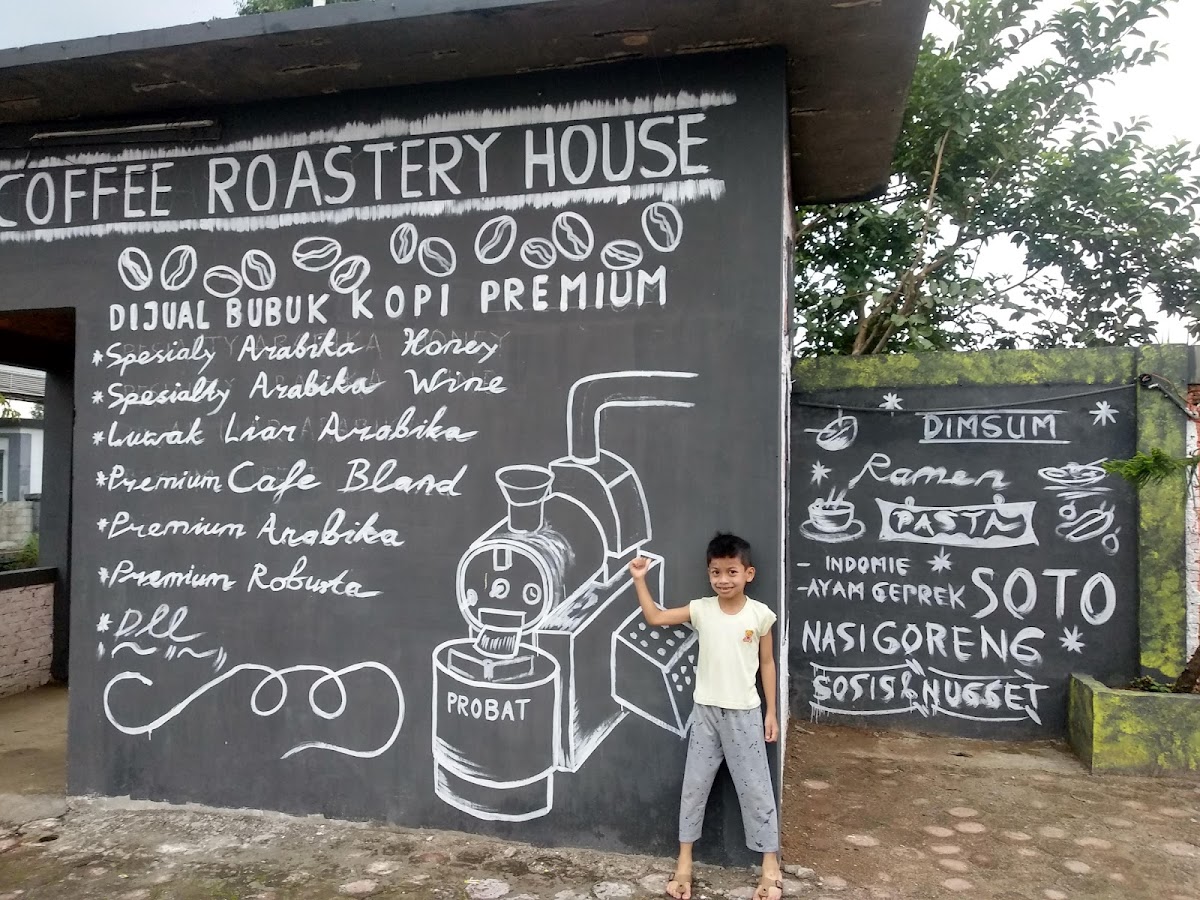 COFFEE ROASTERY HOUSE
DIJUAL BUBUK KOPI PREMIUM
* Spesialy Arabika Honey
* Spesialty Arabika Wine
* Luwak Liar Arabika
* Premium Cafe Bland
* Premium Arabika
* Premium Robusta
* Dll
PROBAT
DIMSUM
Ramen
PASTA
- INDOMIE
- AYAM GEPREK SOTO
NASI GORENG
SOSIS & NUGGET